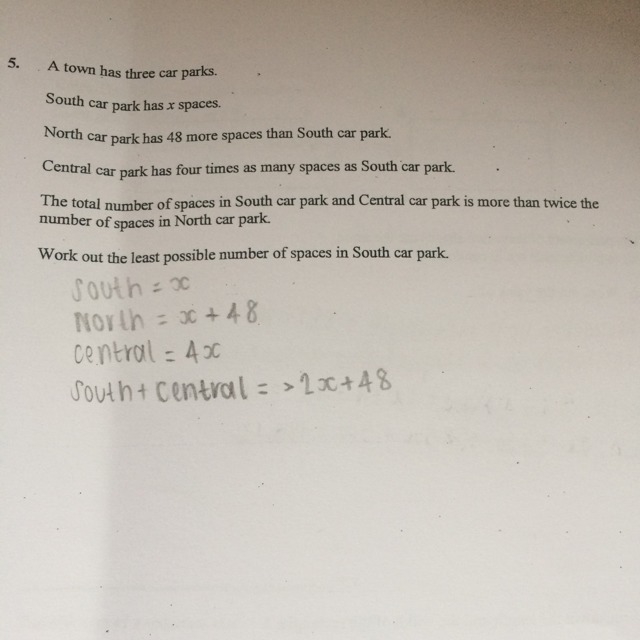 5. A town has three car parks.
South car park has x spaces.
North car park has 48 more spaces than South car park.
Central car park has four times as many spaces as South car park.
The total number of spaces in South car park and Central car park is more than twice the
number of spaces in North car park.
Work out the least possible number of spaces in South car park.
South = x
North = x + 48
central = 4x
South + central = > 2x + 48